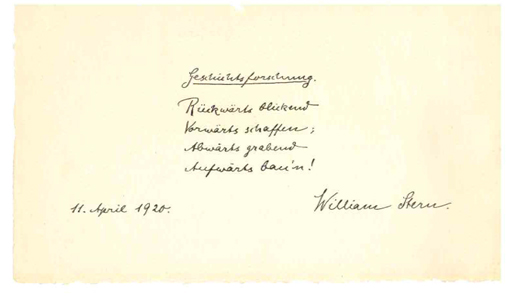 Geschichtsforschung.
Rückwärts blickend
Vorwärts schaffen;
Abwärts grabend
Aufwärts bau'n!
11. April 1920.
William Stern.